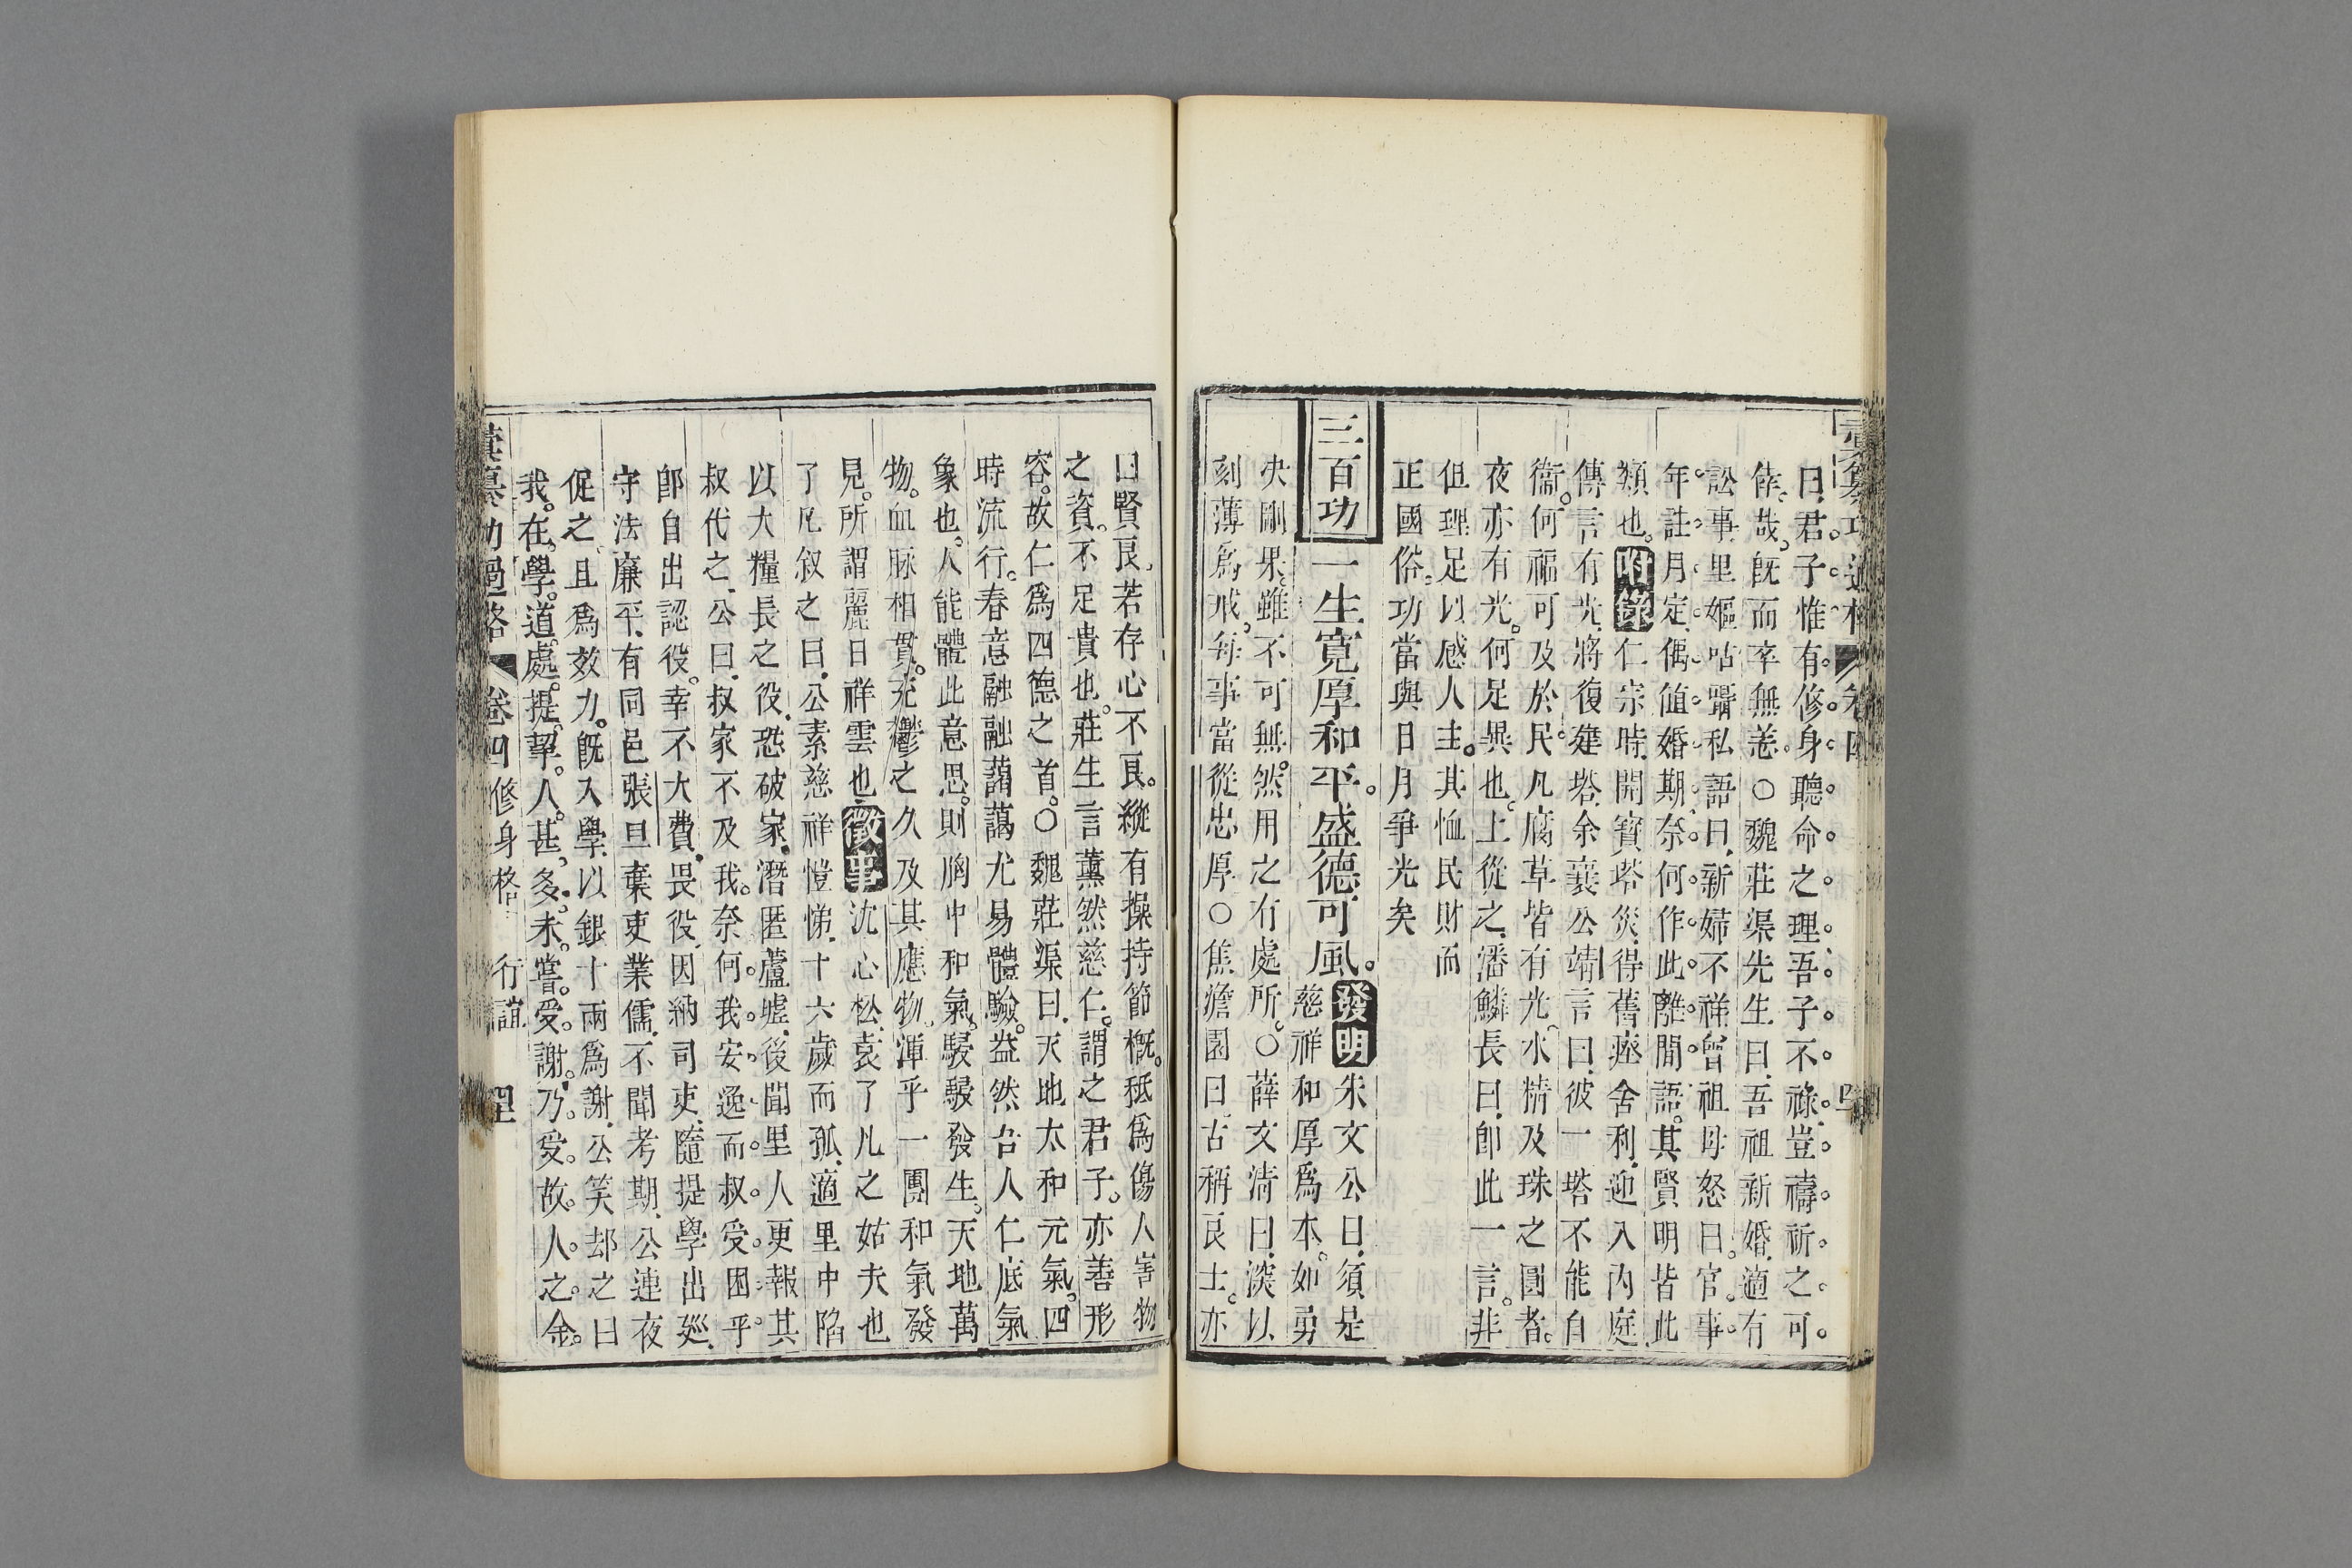 曰君子惟有修身聽命之理吾子不祿豈禱祈之可
倖哉旣而卒無恙○魏莊渠先生曰吾祖新婚適有
訟事里嫗呫囁私語曰新婦不祥曾祖母怒曰官事
年註月定偶値婚期奈何作此離間語其賢明皆此
類也附錄仁宗時開寶塔災得舊瘞舍利迎入內庭
傳言有光將復建塔余襄公靖言曰彼一塔不能自
衞何福可及於民凡腐草皆有光水精及珠之圓者
夜亦有光何足異也上從之潘鱗長曰卽此一言非
但理足以感人主其恤民財而
正國俗功當與日月爭光矣
三百功一生寬厚和平盛德可風發明朱文公曰須是
慈祥和厚爲本如勇
决剛果雖不可無然用之有處所○薛文淸曰深以
刻薄爲戒每事當從忠厚○焦澹園曰古稱良士亦
曰賢良若存心不良縱有操持節概秪爲傷人害物
之資不足貴也莊生言薰然慈仁謂之君子亦善形
容故仁爲四德之首○魏莊渠曰天地太和元氣四
時流行春意融融藹藹尤易體驗益然合人仁底氣
象也人能體此意思則胸中和氣駸駸發生天地萬
物血脉相貫充鬱之久及其應物渾乎一團和氣發
見所謂麗日祥雲也徵事沈心松袁了凡之姑夫也
了凡叙之曰公素慈祥愷悌十六歲而孤適里中陷
以大糧長之役恐破家潛匿蘆墟後聞里人更報其
叔代之公曰叔家不及我奈何我安逸而叔受困乎
卽自出認役幸不大費畏役因納司吏隨提學出廵
守法廉平有同邑張旦棄吏業儒不聞考期公連夜
促之且爲效力旣入學以銀十兩爲謝公笑却之曰
我在學道處提挈人甚多未嘗受謝乃受故人之金
彙纂功過格 卷四 修身格 行誼